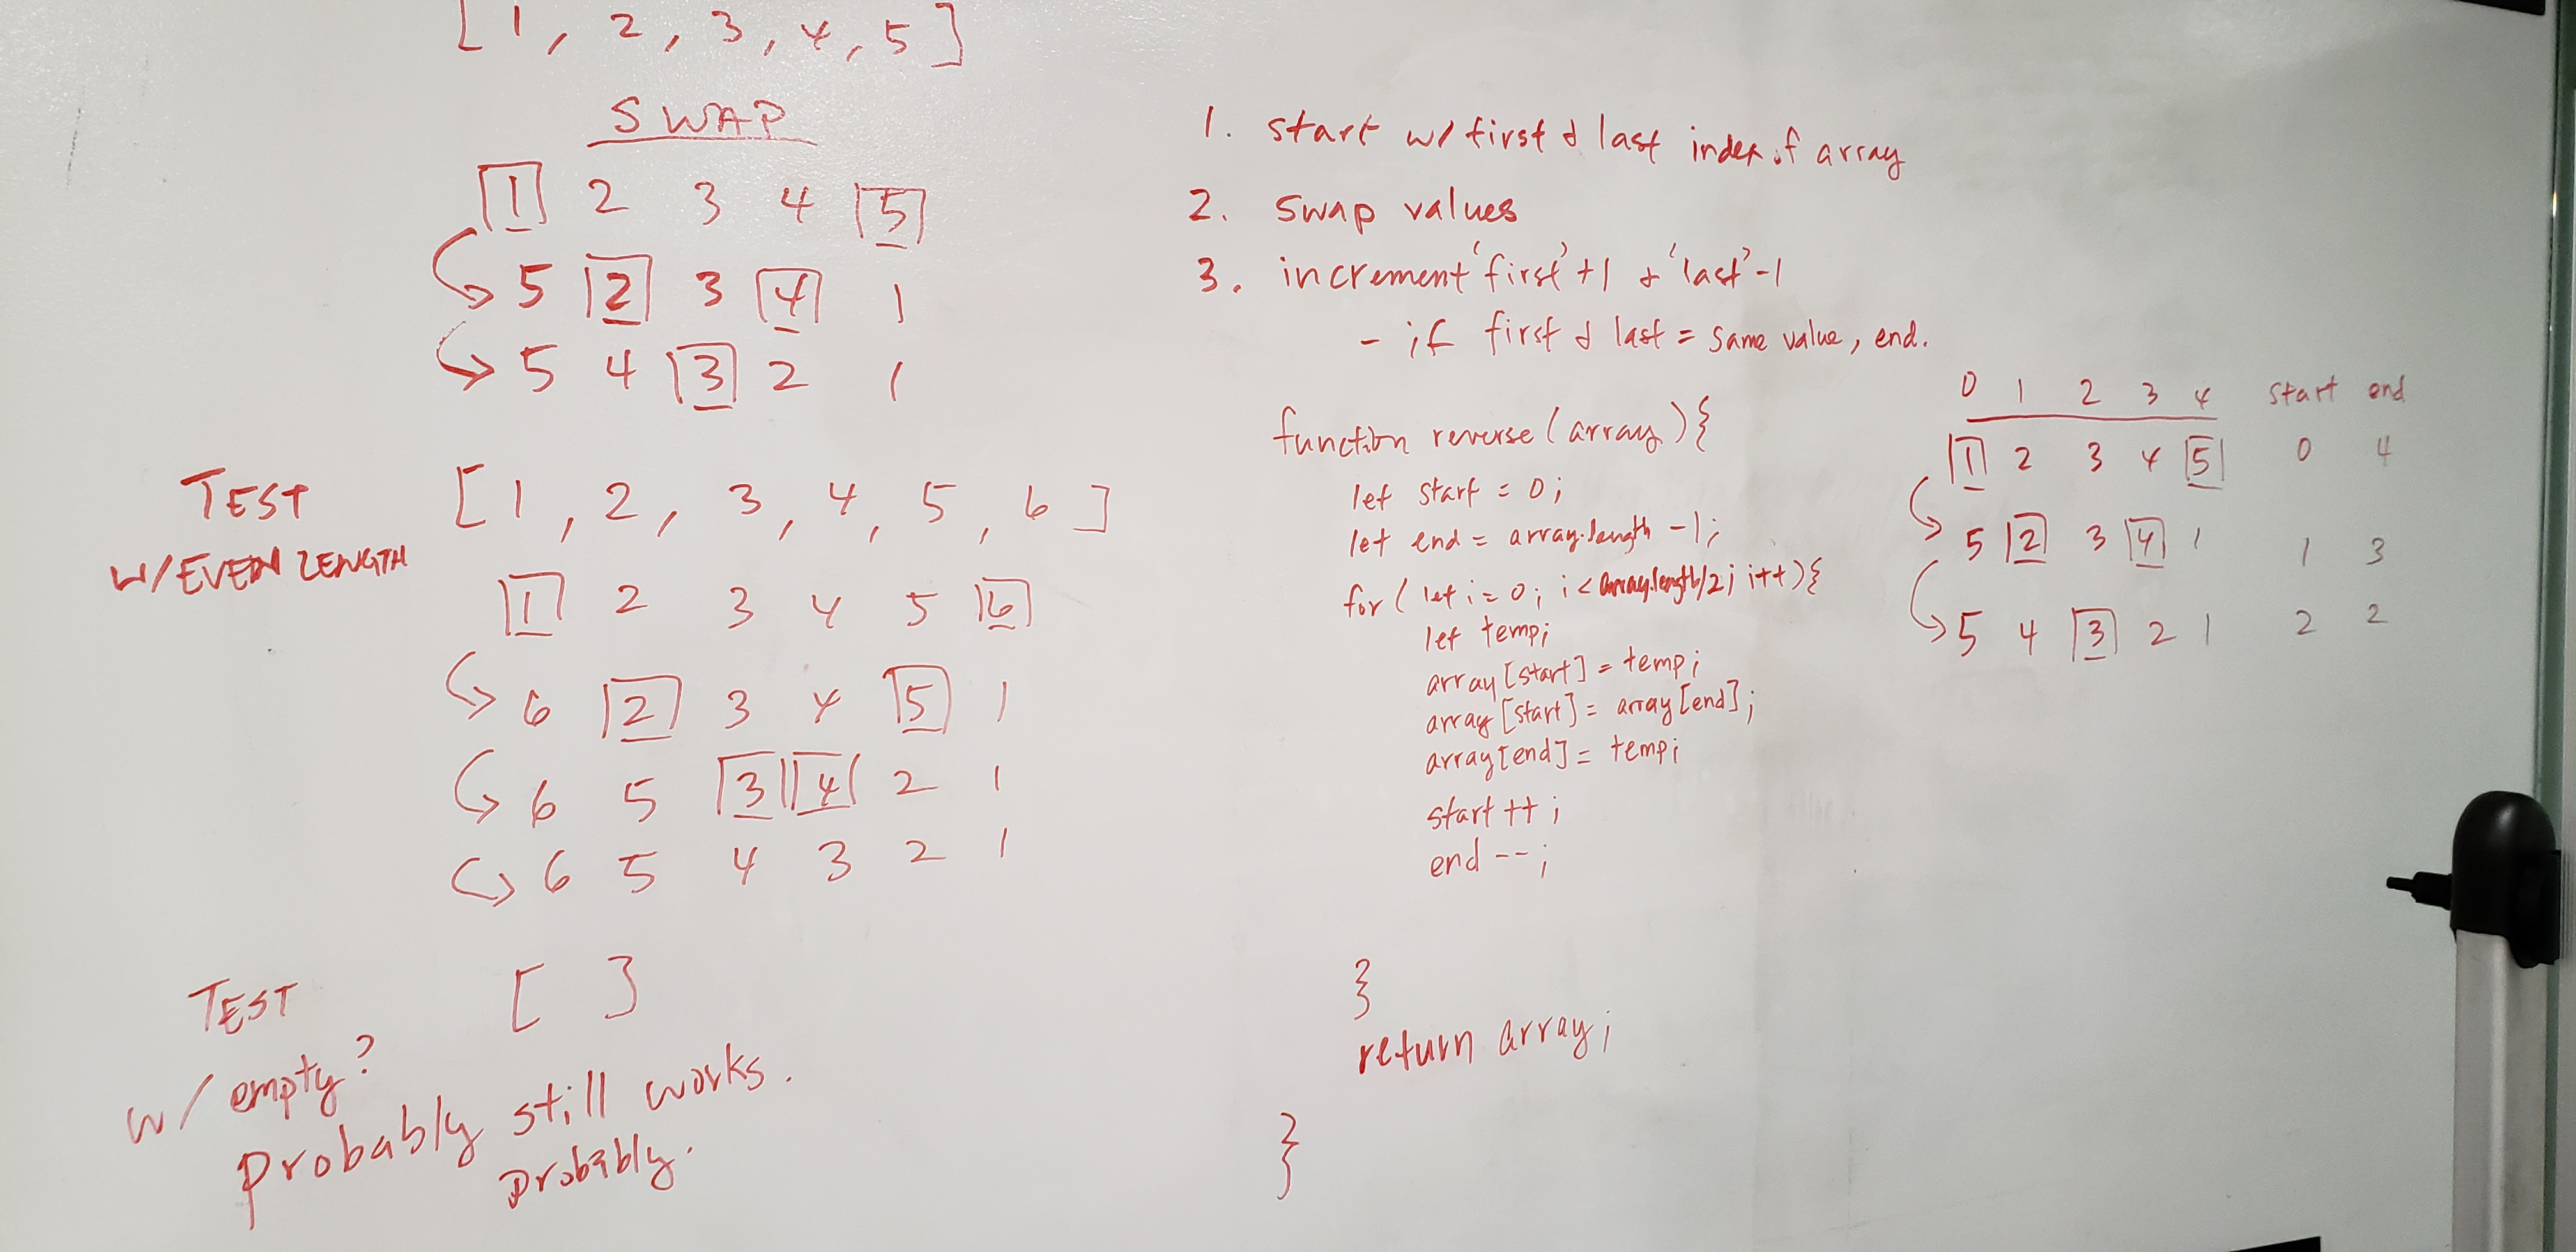 [1, 2, 3, 4, 5]
SWAP
1 2 3 4 5
5 2 3 4 1
5 4 3 2 1
TEST
W/EVEN LENGTH
[1, 2, 3, 4, 5, 6]
1 2 3 4 5 6
6 2 3 4 5 1
6 5 3 4 2 1
6 5 4 3 2 1
TEST
w/ empty?
[ ]
Probably still works.
Probably.
1. start w/ first & last index of array
2. swap values
3. increment 'first' +1 & 'last' -1
- if first & last = same value, end.
function reverse (array) {
let start = 0;
let end = array.length -1;
for ( let i = 0; i < array.length/2; i++) {
let temp;
array[start] = temp;
array[start] = array[end];
array[end] = temp;
start ++;
end --;
}
return array;
}
0 1 2 3 4 start end
1 2 3 4 5 0 4
5 2 3 4 1 1 3
5 4 3 2 1 2 2